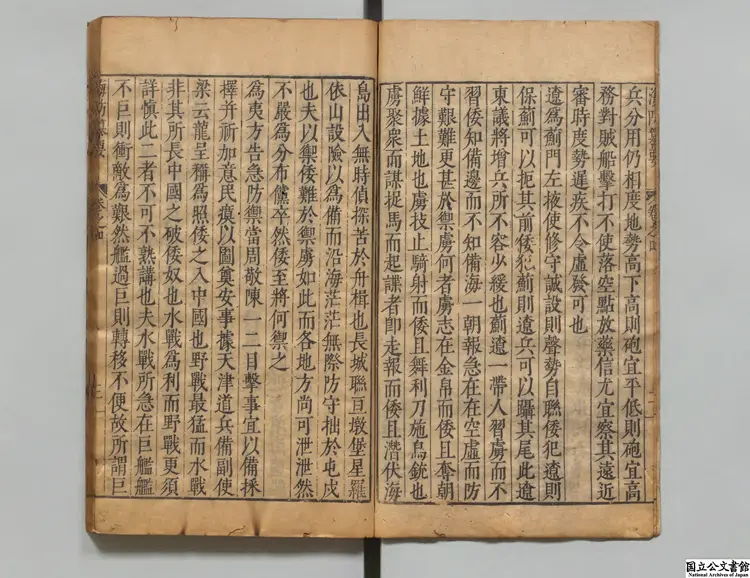 兵分用仍相度地勢高下高則砲宜平低則砲宜高
務對賊船擊打不使落空點放藥信尤宜察其遠近
審時度勢遲疾不令虛發可也
遼爲薊門左掖使修守誠設則聲勢自聯倭犯遼則
保薊可以扼其前倭犯薊則遼兵可以躡其尾此遼
東議將增兵所不容少緩也薊遼一帶人習虜而不
習倭知備邊而不知備海一朝報急在在空虛而防
守艱難更甚於禦虜何者虜志在金帛而倭且奪朝
鮮據土地也虜技止騎射而倭且舞利刀施鳥銃也
虜聚衆而謀捉馬而起諜者即走報而倭且潛伏海
島出入無時偵探苦於舟楫也長城聯亘墩堡星羅
依山設險以爲備而沿海茫茫無際防守拙於屯戍
也夫以禦倭難於禦虜如此而各地方尚可泄泄然
不嚴爲分布儻卒然倭至將何禦之
爲夷方告急防禦當周敬陳一二目擊事宜以備採
擇并祈加意民瘼以圖奠安事據天津道兵備副使
梁云龍呈稱爲照倭之入中國也野戰最猛而水戰
非其所長中國之破倭奴也水戰爲利而野戰更須
詳慎此二者不可不熟講也夫水戰所急在巨艦艦
不巨則衝敵爲艱然艦過巨則轉移不便故所謂巨
国立公文書館
National Archives of Japan